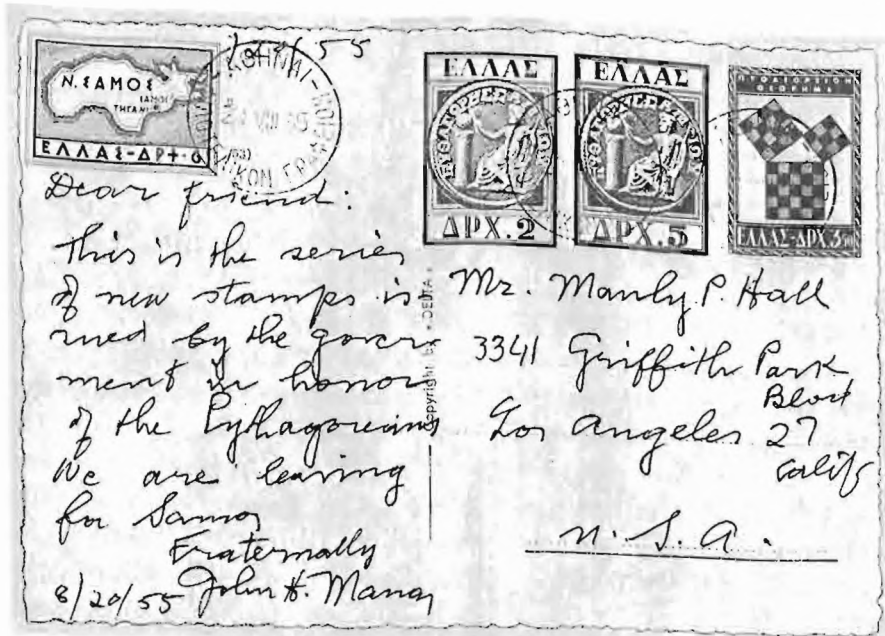 Ν. ΣΑΜΟΣ
ΣΑΜΟΣ
ΤΗΓΑΝΙ
ΕΛΛΑΣ-ΔΡ+·
ΕΛΛΑΣ
ΔΡΧ.2
ΕΛΛΑΣ
ΔΡΧ.5
ΠΥΘΑΓΟΡΕΙΟΝ
ΘΕΩΡΗΜΑ
ΕΛΛΑΣ-ΔΡΧ.3,50
Dear friend:
This is the series
of new stamps is
sued by the govern
ment in honor
of the Pythagoreans
We are leaving
for Samos
Fraternally
8/20/55 John H.
Copyright by DELTA
Mr. Manly P. Hall
3341 Griffith Park
Blvd
Los Angeles 27
Calif
U. S. A.